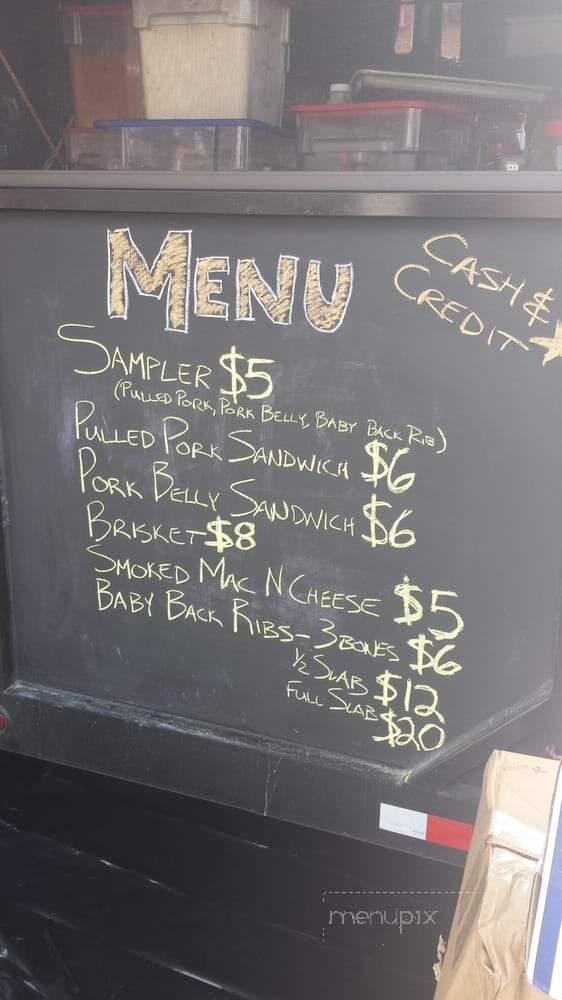 MENU
CASH &
CREDIT
SAMPLER $5
(PULLED PORK, PORK BELLY, BABY BACK RIB)
PULLED PORK SANDWICH $6
PORK BELLY SANDWICH $6
BRISKET - $8
SMOKED MAC N CHEESE $5
BABY BACK RIBS - 3 BONES $6
1/2 SLAB $12
FULL SLAB $20
menupix